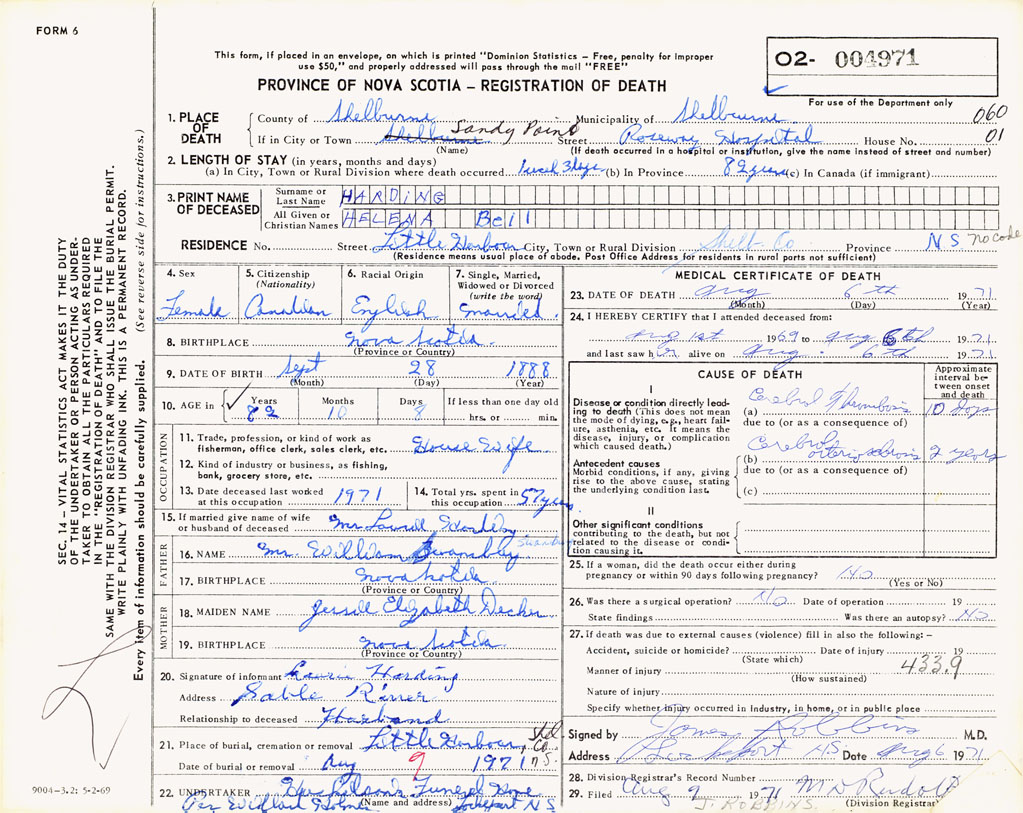 FORM 6
This form, if placed in an envelope, on which is printed "Dominion Statistics – Free, penalty for improper
use $50," and properly addressed will pass through the mail "FREE"
PROVINCE OF NOVA SCOTIA – REGISTRATION OF DEATH
02- 004971
For use of the Department only
060
01
1. PLACE OF DEATH
County of Shelburne Municipality of Shelburne
If in City or Town Shelburne Sandy Point Street Roseway Hospital House No.
(Name) (If death occurred in a hospital or institution, give the name instead of street and number)
2. LENGTH OF STAY (in years, months and days)
(a) In City, Town or Rural Division where death occurred 3 days (b) In Province 82 years (c) In Canada (if immigrant)
3. PRINT NAME OF DECEASED
Surname or Last Name HARDING
All Given or Christian Names HELENA Bell
RESIDENCE No. Street Little Harbour City, Town or Rural Division Shelb. Co Province N S no code
(Residence means usual place of abode. Post Office Address for residents in rural parts not sufficient)
4. Sex Female
5. Citizenship (Nationality) Canadian
6. Racial Origin English
7. Single, Married, Widowed or Divorced (write the word) married
8. BIRTHPLACE Nova Scotia
(Province or Country)
9. DATE OF BIRTH Sept 28 1888
(Month) (Day) (Year)
10. AGE in Years 82 Months 10 Days 8 If less than one day old hrs. or min.
OCCUPATION
11. Trade, profession, or kind of work as fisherman, office clerk, sales clerk, etc. House Wife
12. Kind of industry or business, as fishing, bank, grocery store, etc.
13. Date deceased last worked at this occupation 1971
14. Total yrs. spent in this occupation 57 years
15. If married give name of wife or husband of deceased Mr Harding
FATHER
16. NAME Mr. William
17. BIRTHPLACE Nova Scotia
(Province or Country)
MOTHER
18. MAIDEN NAME Jessie Elizabeth Decker
19. BIRTHPLACE Nova Scotia
(Province or Country)
20. Signature of informant Harding
Address Sable River
Relationship to deceased Husband
21. Place of burial, cremation or removal Little Harbour, Shel Co. N.S.
Date of burial or removal Aug 9 1971
22. UNDERTAKER Funeral Home
(Name and address) Lockeport N S
9004-3.2: 5-2-69
MEDICAL CERTIFICATE OF DEATH
23. DATE OF DEATH Aug 6th 1971
(Month) (Day) (Year)
24. I HEREBY CERTIFY that I attended deceased from:
Aug 1st 1969 to Aug 6th 1971
and last saw her alive on Aug. 6th 1971
CAUSE OF DEATH
Approximate interval between onset and death
I
Disease or condition directly leading to death (This does not mean the mode of dying, e.g., heart failure, asthenia, etc. It means the disease, injury, or complication which caused death.)
(a) Cerebral Thrombosis 10 days
due to (or as a consequence of)
Antecedent causes
Morbid conditions, if any, giving rise to the above cause, stating the underlying condition last.
(b) Cerebral arteriosclerosis 2 years
due to (or as a consequence of)
(c)
II
Other significant conditions
contributing to the death, but not related to the disease or condition causing it.
25. If a woman, did the death occur either during pregnancy or within 90 days following pregnancy? No
(Yes or No)
26. Was there a surgical operation? No Date of operation 19
State findings Was there an autopsy? No
27. If death was due to external causes (violence) fill in also the following: –
Accident, suicide or homicide? Date of injury 19
(State which)
433.9
Manner of injury
(How sustained)
Nature of injury
Specify whether injury occurred in industry, in home, or in public place
Signed by James Robbins M.D.
Address Lockeport NS Date Aug 6 1971
28. Division Registrar's Record Number
29. Filed Aug 9 1971
J. ROBBINS.
(Division Registrar)
SEC. 14 – VITAL STATISTICS ACT MAKES IT THE DUTY
OF THE UNDERTAKER OR PERSON ACTING AS UNDER-
TAKER TO OBTAIN ALL THE PARTICULARS REQUIRED
IN THE "REGISTRATION OF DEATH" AND TO FILE THE
SAME WITH THE DIVISION REGISTRAR WHO SHALL ISSUE THE BURIAL PERMIT.
WRITE PLAINLY WITH UNFADING INK. THIS IS A PERMANENT RECORD.
Every item of information should be carefully supplied. (See reverse side for instructions.)